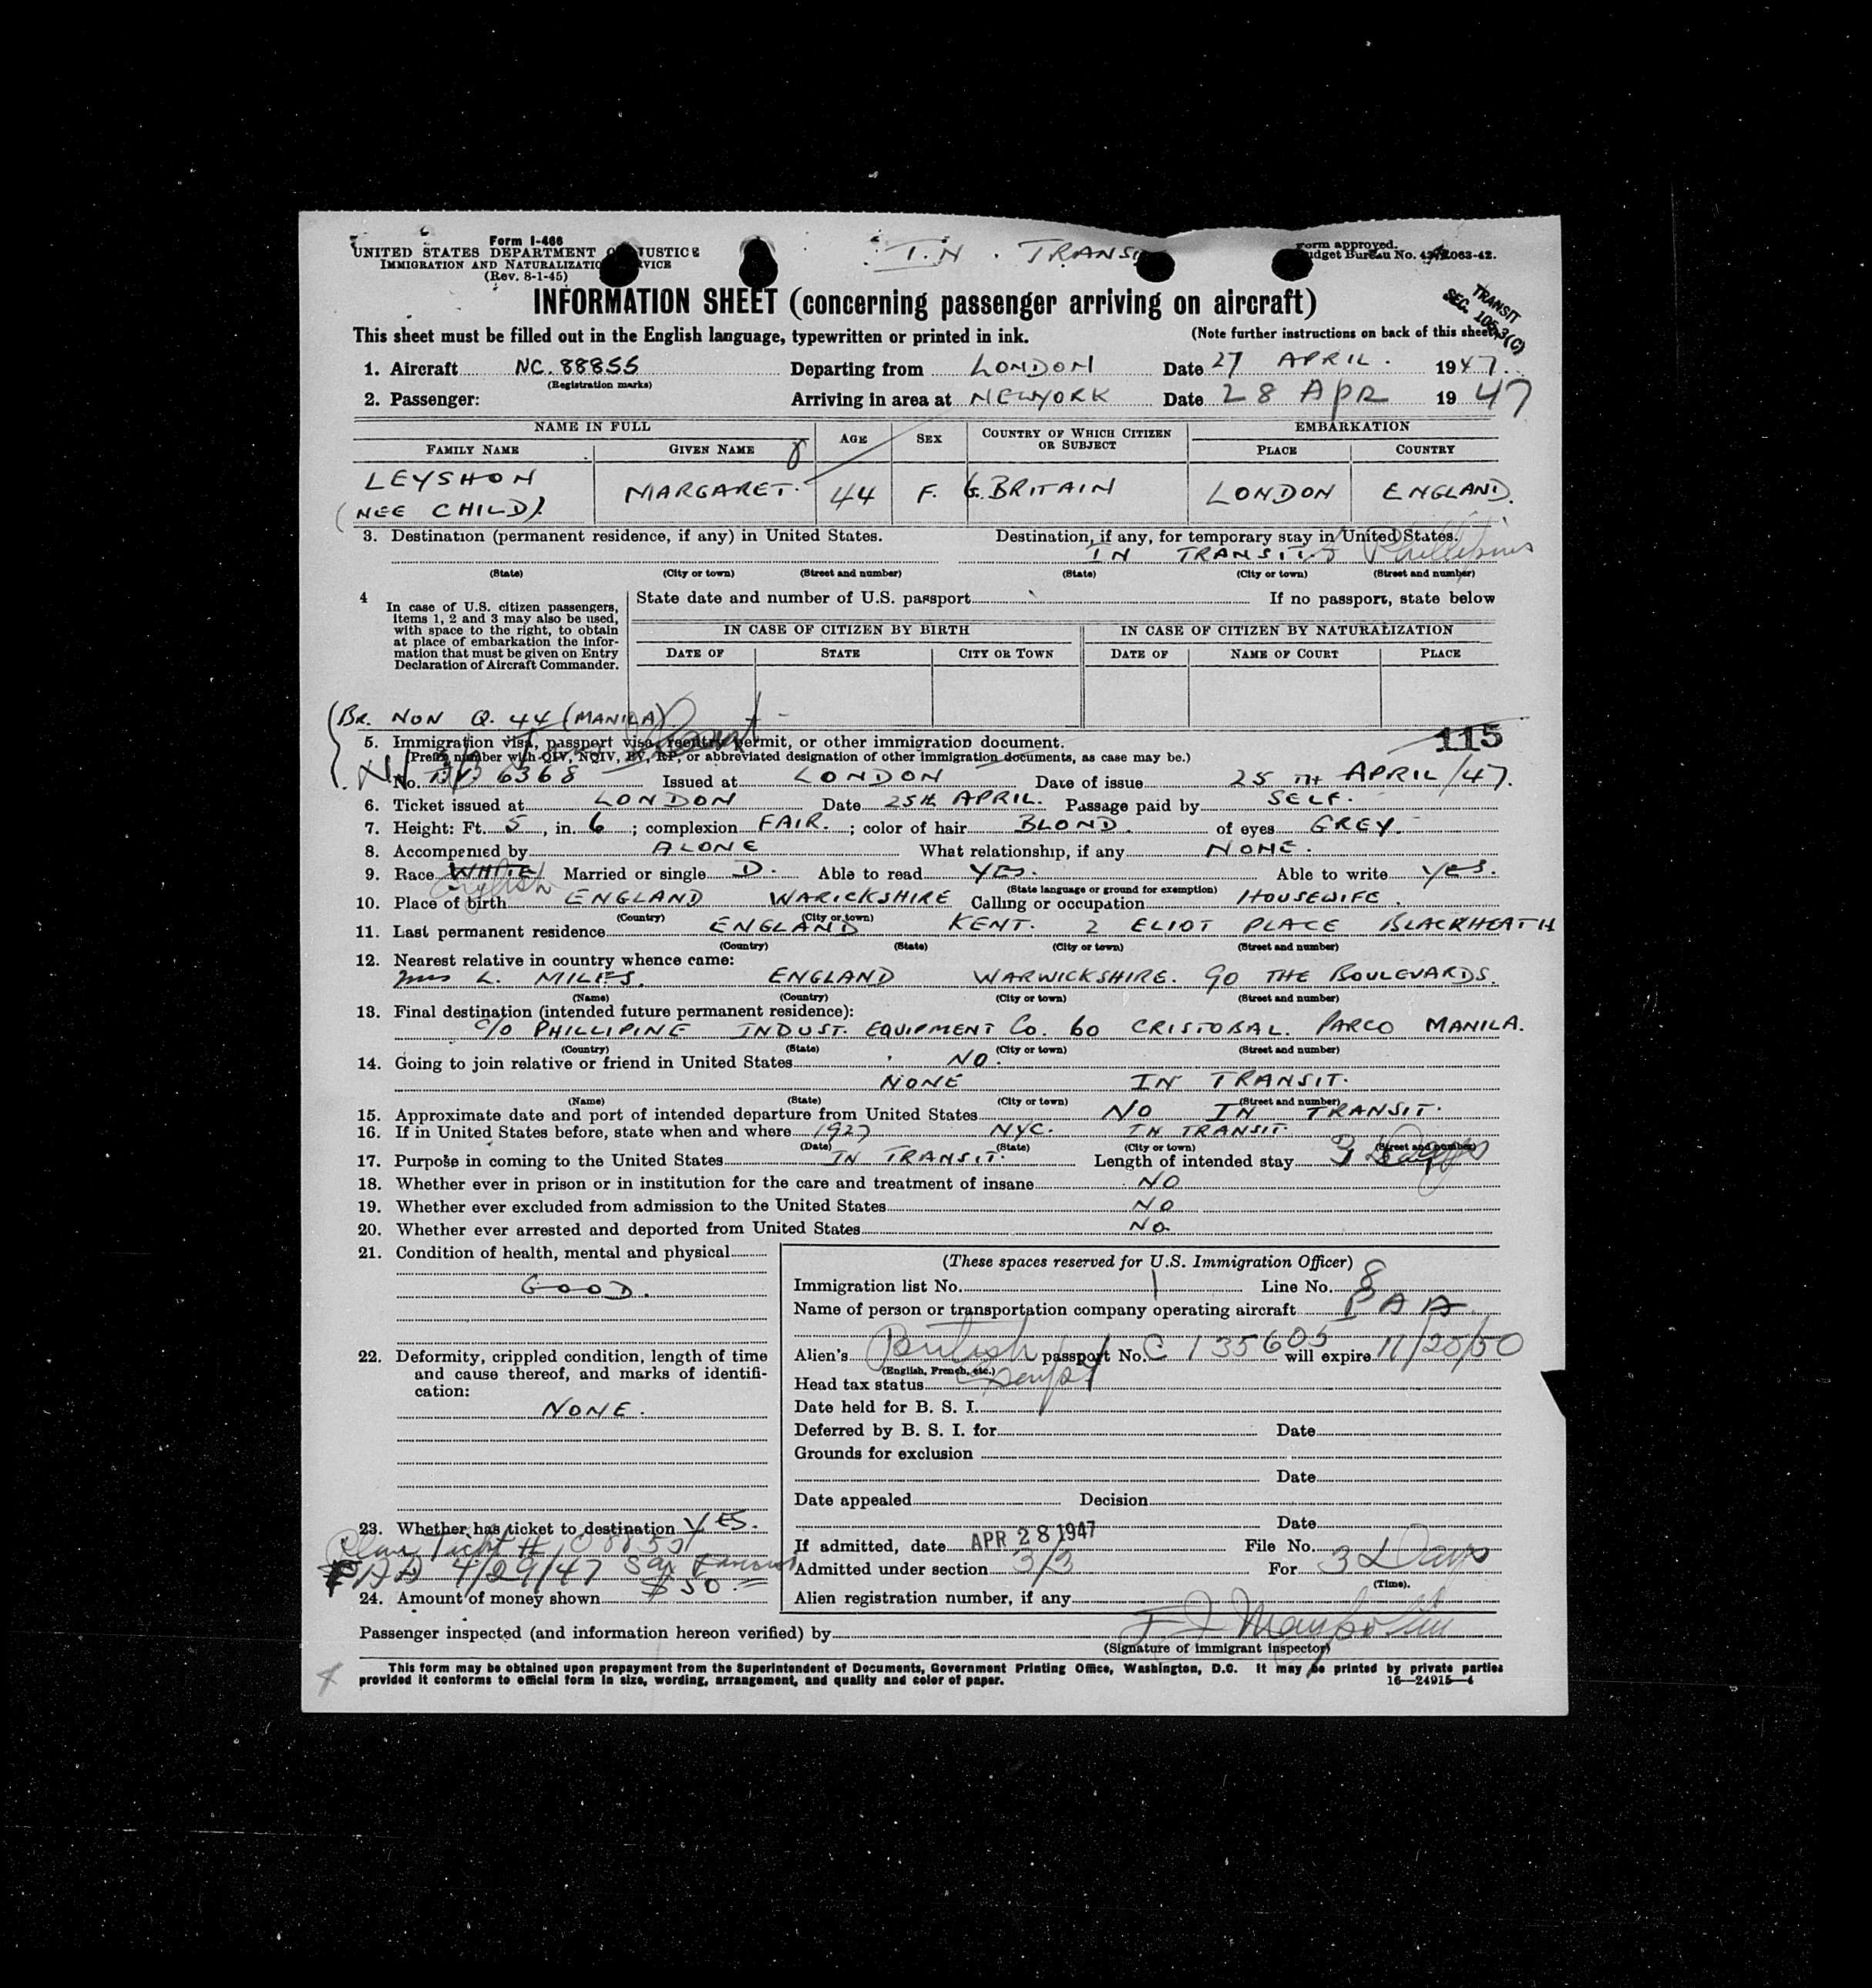 Form I-466
UNITED STATES DEPARTMENT OF JUSTICE
IMMIGRATION AND NATURALIZATION SERVICE
(Rev. 8-1-45)
IN TRANSIT
Form approved.
Budget Bureau No. 063-42.
TRANSIT
SEC. 105.3(C)
INFORMATION SHEET (concerning passenger arriving on aircraft)
This sheet must be filled out in the English language, typewritten or printed in ink. (Note further instructions on back of this sheet)
1. Aircraft NC.88855 Departing from LONDON Date 27 APRIL. 1947.
(Registration marks)
2. Passenger: Arriving in area at NEWYORK Date 28 APR 1947
NAME IN FULL AGE SEX COUNTRY OF WHICH CITIZEN OR SUBJECT EMBARKATION
FAMILY NAME GIVEN NAME PLACE COUNTRY
8
LEYSHON MARGARET. 44 F. G. BRITAIN LONDON ENGLAND.
(NEE CHILD).
3. Destination (permanent residence, if any) in United States. Destination, if any, for temporary stay in United States.
IN TRANSIT. Phillipines
(State) (City or town) (Street and number) (State) (City or town) (Street and number)
4 In case of U.S. citizen passengers, items 1, 2 and 3 may also be used, with space to the right, to obtain at place of embarkation the information that must be given on Entry Declaration of Aircraft Commander.
State date and number of U.S. passport If no passport, state below
IN CASE OF CITIZEN BY BIRTH IN CASE OF CITIZEN BY NATURALIZATION
DATE OF STATE CITY OR TOWN DATE OF NAME OF COURT PLACE
(BR. NON Q. 44 (MANILA)
115
5. Immigration visa, passport visa, reentry permit, or other immigration document.
(Prefix number with QIV, NQIV, PV, RP, or abbreviated designation of other immigration documents, as case may be.)
No. T.V. 6368 Issued at LONDON Date of issue 25TH APRIL/47.
6. Ticket issued at LONDON Date 25th APRIL. Passage paid by SELF.
7. Height: Ft. 5, in. 6; complexion FAIR.; color of hair BLOND. of eyes GREY.
8. Accompanied by ALONE What relationship, if any NONE.
9. Race WHITE English Married or single D. Able to read YES. Able to write YES.
(State language or ground for exemption)
10. Place of birth ENGLAND WARICKSHIRE Calling or occupation HOUSEWIFE.
(Country) (City or town)
11. Last permanent residence ENGLAND KENT. 2 ELIOT PLACE BLACKHEATH
(Country) (State) (City or town) (Street and number)
12. Nearest relative in country whence came:
Mrs L. MILES. ENGLAND WARWICKSHIRE. 90 THE BOULEVARDS.
(Name) (Country) (City or town) (Street and number)
13. Final destination (intended future permanent residence):
C/O PHILLIPINE INDUST. EQUIPMENT Co. 60 CRISTOBAL. PARCO MANILA.
(Country) (State) (City or town) (Street and number)
14. Going to join relative or friend in United States NO.
NONE IN TRANSIT.
(Name) (State) (City or town) (Street and number)
15. Approximate date and port of intended departure from United States NO IN TRANSIT.
16. If in United States before, state when and where 1927 NYC. IN TRANSIT.
(Date) (State) (City or town) (Street and number)
17. Purpose in coming to the United States IN TRANSIT. Length of intended stay 3 Days
18. Whether ever in prison or in institution for the care and treatment of insane NO
19. Whether ever excluded from admission to the United States NO
20. Whether ever arrested and deported from United States NO
21. Condition of health, mental and physical
GOOD.
22. Deformity, crippled condition, length of time and cause thereof, and marks of identification:
NONE.
23. Whether has ticket to destination YES.
Ticket #
PAA 4/29/47 San
24. Amount of money shown $50
(These spaces reserved for U.S. Immigration Officer)
Immigration list No. 1 Line No. 8
Name of person or transportation company operating aircraft PAA
Alien's British passport No. C 135605 will expire 11/25/50
(English, French, etc.)
Head tax status Exempt
Date held for B. S. I.
Deferred by B. S. I. for Date
Grounds for exclusion
Date
Date appealed Decision
Date
If admitted, date APR 28 1947 File No.
Admitted under section 3/3 For 3 Days
(Time).
Alien registration number, if any
Passenger inspected (and information hereon verified) by
(Signature of immigrant inspector)
This form may be obtained upon prepayment from the Superintendent of Documents, Government Printing Office, Washington, D.C. It may be printed by private parties
provided it conforms to official form in size, wording, arrangement, and quality and color of paper. 16—24915-4